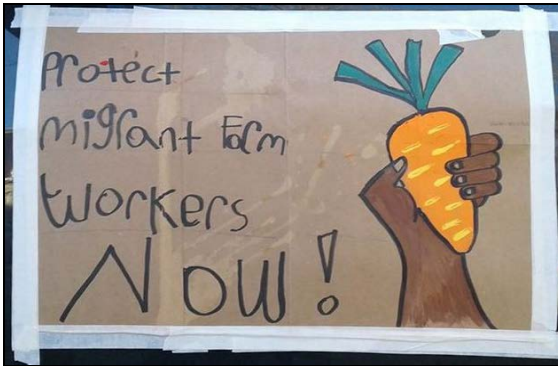 Protect
migrant Farm
workers
Now!